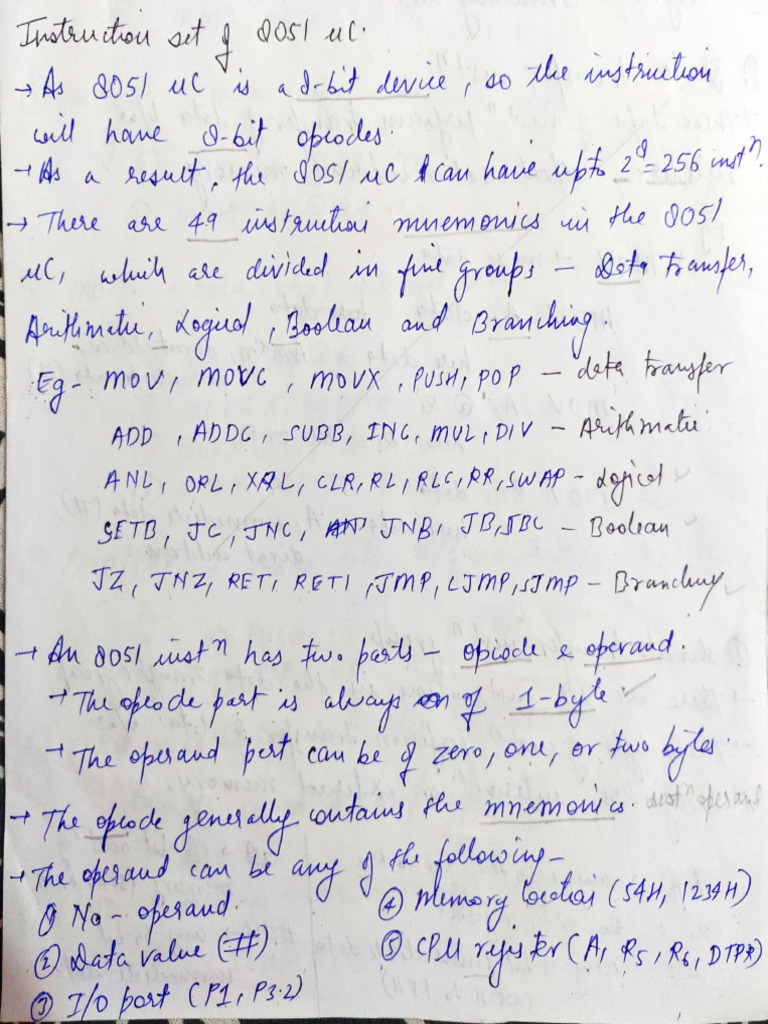 Instruction set of 8051 uC.
→ As 8051 uC is a 8-bit device, so the instruction
will have 8-bit opcodes.
→ As a result, the 8051 uC can have upto 2⁸=256 instⁿ.
→ There are 49 instruction mnemonics in the 8051
uC, which are divided in five groups – Data transfer,
Arithmatic, Logical, Boolean and Branching.
Eg- MOV, MOVC, MOVX, PUSH, POP – data transfer
ADD, ADDC, SUBB, INC, MUL, DIV – Arithmatic
ANL, ORL, XRL, CLR, RL, RLC, RR, SWAP – Logical
SETB, JC, JNC, JNB, JB, JBC – Boolean
JZ, JNZ, RET, RETI, JMP, LJMP, SJMP – Branching
→ An 8051 instⁿ has two parts – opcode & operand.
→ The opcode part is always of 1-byte.
→ The operand part can be of zero, one, or two bytes.
→ The opcode generally contains the mnemonics.
→ The operand can be any of the following –
① No-operand.
② Data value (#)
③ I/O port (P1, P3.2)
④ Memory location (54H, 1234H)
⑤ CPU register (A, R5, R6, DTPR)